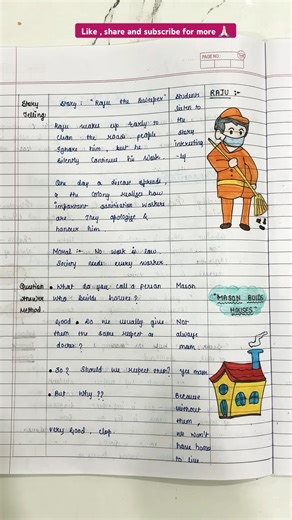 Like, share and subscribe for more 🙏
PAGE NO.:
Story Telling
Story : "Raju the Sweeper"
Raju wakes up early to
clean the roads people
ignore him, but he
silently continues his work
One day a disease spreads,
& the colony realizes how
important sanitation workers
are. They apologize &
honour him.
Moral :- No work is low
Society needs every worker.
Students
listen to
the
story
interesting
-ly
RAJU :-
Question Answer Method.
• What do you call a person
who builds houses?
Mason
"MASON BUILDS
HOUSES"
Good • Do we usually give
them the same respect as
doctor?
Not
always
mam
• So? Should we respect them?
yes mam
• But Why??
Because
without
them,
we won't
have home
to live
Very good, clap.